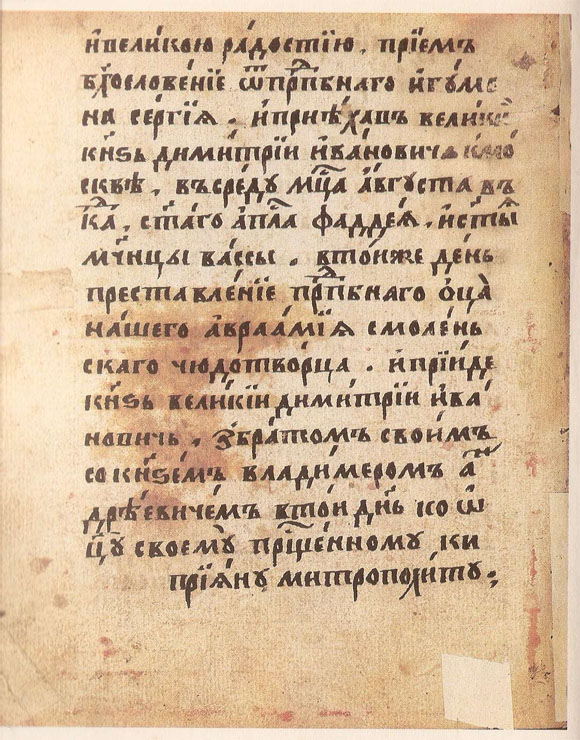 и҆великою ра́достїю . прїе́мъ
бл҃гослове́нїе ѿпрп҇бнаго и҆гу́ме
на се́ргїѧ . и҆прие́хавъ вели́к
кн҃ѕь дими́трїи и҆ва́новичь
сквѣ̀ . въсре́ду мц҇а а҆́вгуста въ
к҃а . ст҃а́го а҆пⷭ҇ла фадде́ѧ . и҆ст҃ы́ѧ
мч҃нцы ва́ссы . вто́иже де́нь
преставле́нїе прп҇бнаго ѻ҆ц҃а̀
на́шего а҆враа́мїѧ смоле́нь
скаго чюдотво́рца . и҆прїи́де
кн҃ѕь вели́кїи дими́трїи и҆ва́
новичь . з̾бра́томъ свои́мъ
со кн҃ѕе́мъ влади́меромъ а҆н
дрѣ́евичемъ вто́и дн҃ь ко ѿ
цу̀ своему̀ прⷭ҇ще́нному ки
прїѧ́ну митрополи́ту .